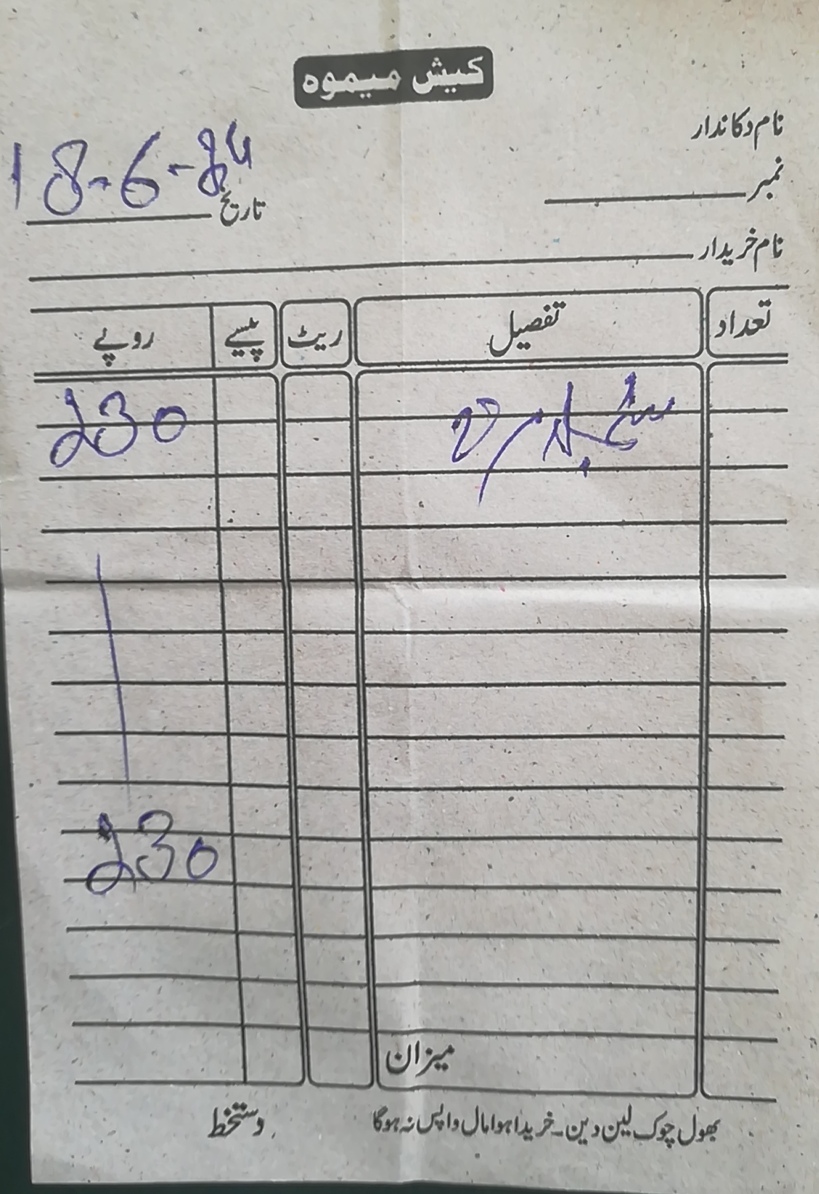 کیش میموہ
نام دکاندار
نمبر
تاریخ 18-6-24
نام خریدار
تعداد تفصیل ریٹ پیسے روپے
230
230
میزان
بھول چوک لین دین۔خریدا ہوا مال واپس نہ ہوگا
دستخط